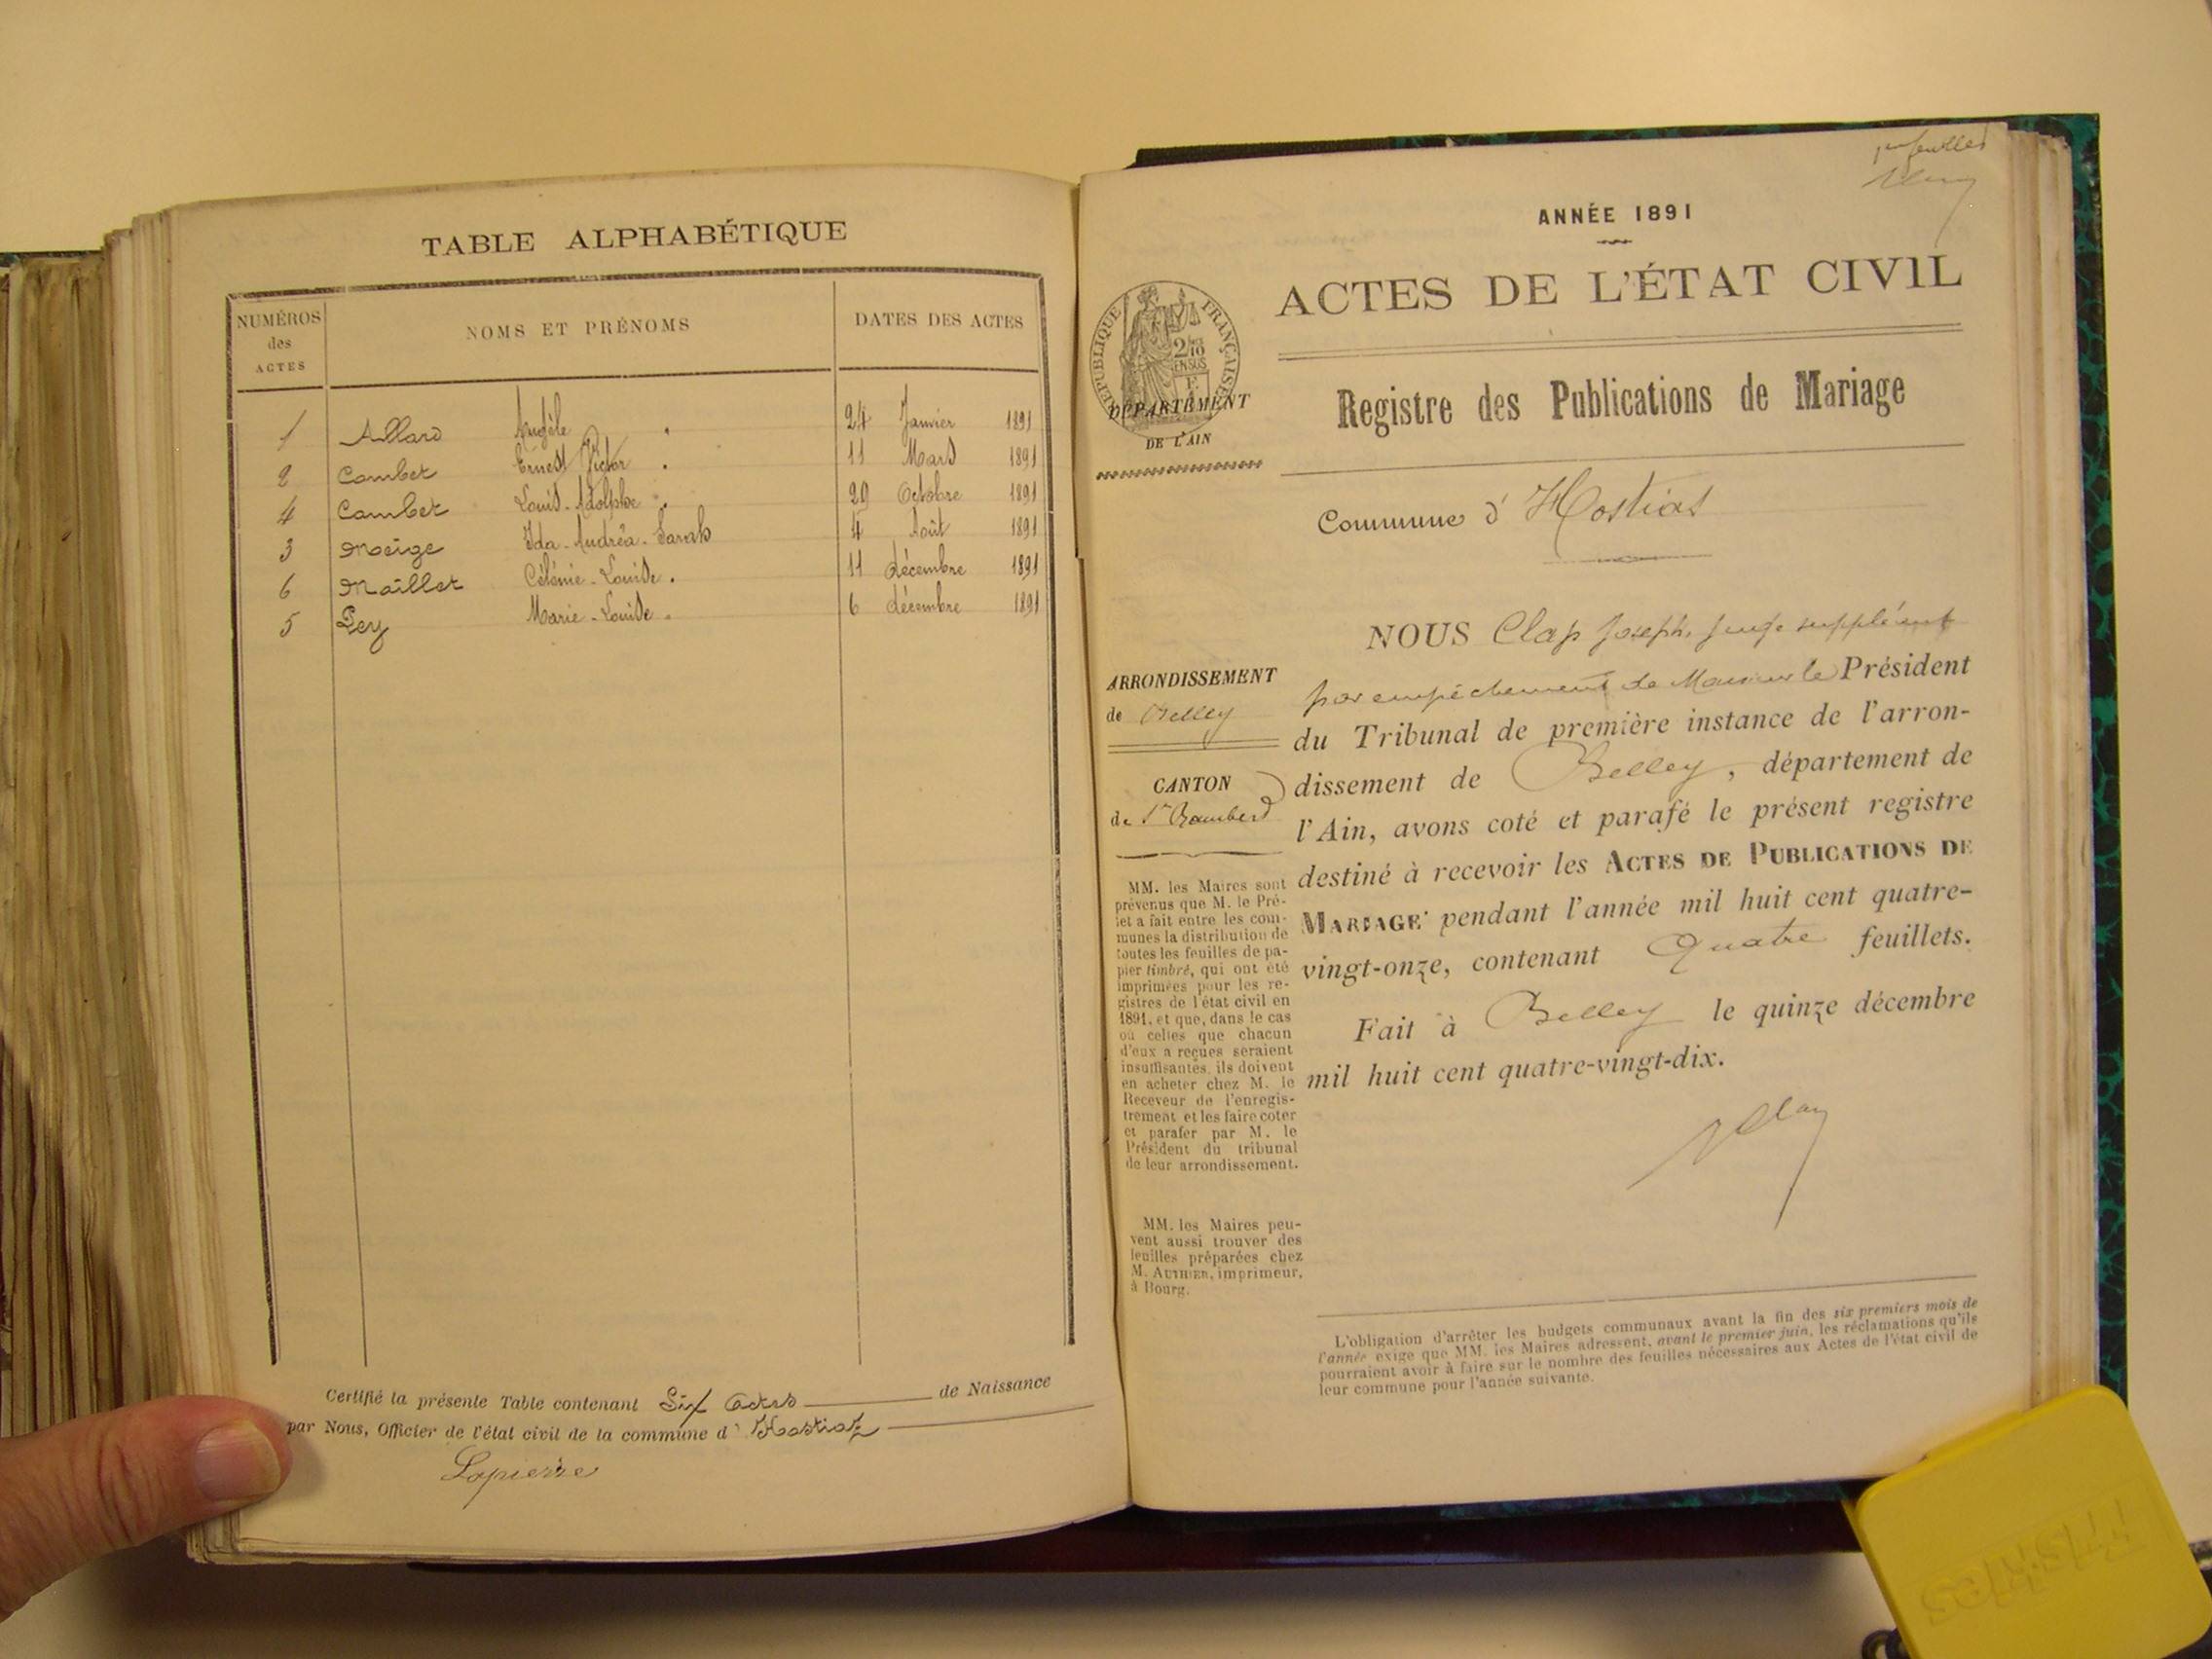 TABLE ALPHABÉTIQUE
NUMÉROS des ACTES
NOMS ET PRÉNOMS
DATES DES ACTES
1 Allard Angèle 24 Janvier 1891
2 Combet Ernest Victor 11 Mars 1891
4 Combet Louis-Adolphe 29 Octobre 1891
3 Meige Ida-Andréa-Sarah 4 Août 1891
6 Maillet Célénie-Louise. 11 décembre 1891
5 Pey Marie-Louise. 6 décembre 1891
Certifié la présente Table contenant Six actes de Naissance
par Nous, Officier de l'état civil de la commune d' Hostiaz
Lapierre
ANNÉE 1891
ACTES DE L'ÉTAT CIVIL
RÉPUBLIQUE FRANÇAISE
2/10 EN SUS
DÉPARTEMENT
DE L'AIN
Registre des Publications de Mariage
Commune d' Hostias
ARRONDISSEMENT
de Belley
CANTON
de St Rambert
MM. les Maires sont
prévenus que M. le Pré-
fet a fait entre les com-
munes la distribution de
toutes les feuilles de pa-
pier timbré, qui ont été
imprimées pour les re-
gistres de l'état civil en
1891, et que, dans le cas
où celles que chacun
d'eux a reçues seraient
insuffisantes, ils doivent
en acheter chez M. le
Receveur de l'enregis-
trement et les faire coter
et parafer par M. le
Président du tribunal
de leur arrondissement.
MM. les Maires peu-
vent aussi trouver des
feuilles préparées chez
M. AUTHIER, imprimeur,
à Bourg.
NOUS Clap Joseph, juge suppléant
par empêchement de Monsieur le Président
du Tribunal de première instance de l'arron-
dissement de Belley, département de
l'Ain, avons coté et parafé le présent registre
destiné à recevoir les ACTES DE PUBLICATIONS DE
MARIAGE pendant l'année mil huit cent quatre-
vingt-onze, contenant Quatre feuillets.
Fait à Belley le quinze décembre
mil huit cent quatre-vingt-dix.
L'obligation d'arrêter les budgets communaux avant la fin des six premiers mois de
l'année exige que MM. les Maires adressent, avant le premier juin, les réclamations qu'ils
pourraient avoir à faire sur le nombre des feuilles nécessaires aux Actes de l'état civil de
leur commune pour l'année suivante.